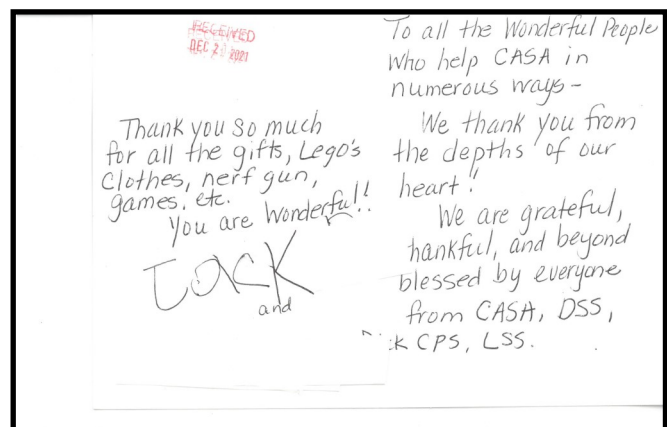 RECEIVED
DEC 2 2021
Thank you so much
for all the gifts, Lego's
Clothes, nerf gun,
games, etc.
You are Wonderful!!
Jack
and
To all the Wonderful People
Who help CASA in
numerous ways-
We thank you from
the depths of our
heart!
We are grateful,
hankful, and beyond
blessed by everyone
from CASA, DSS,
k CPS, LSS.